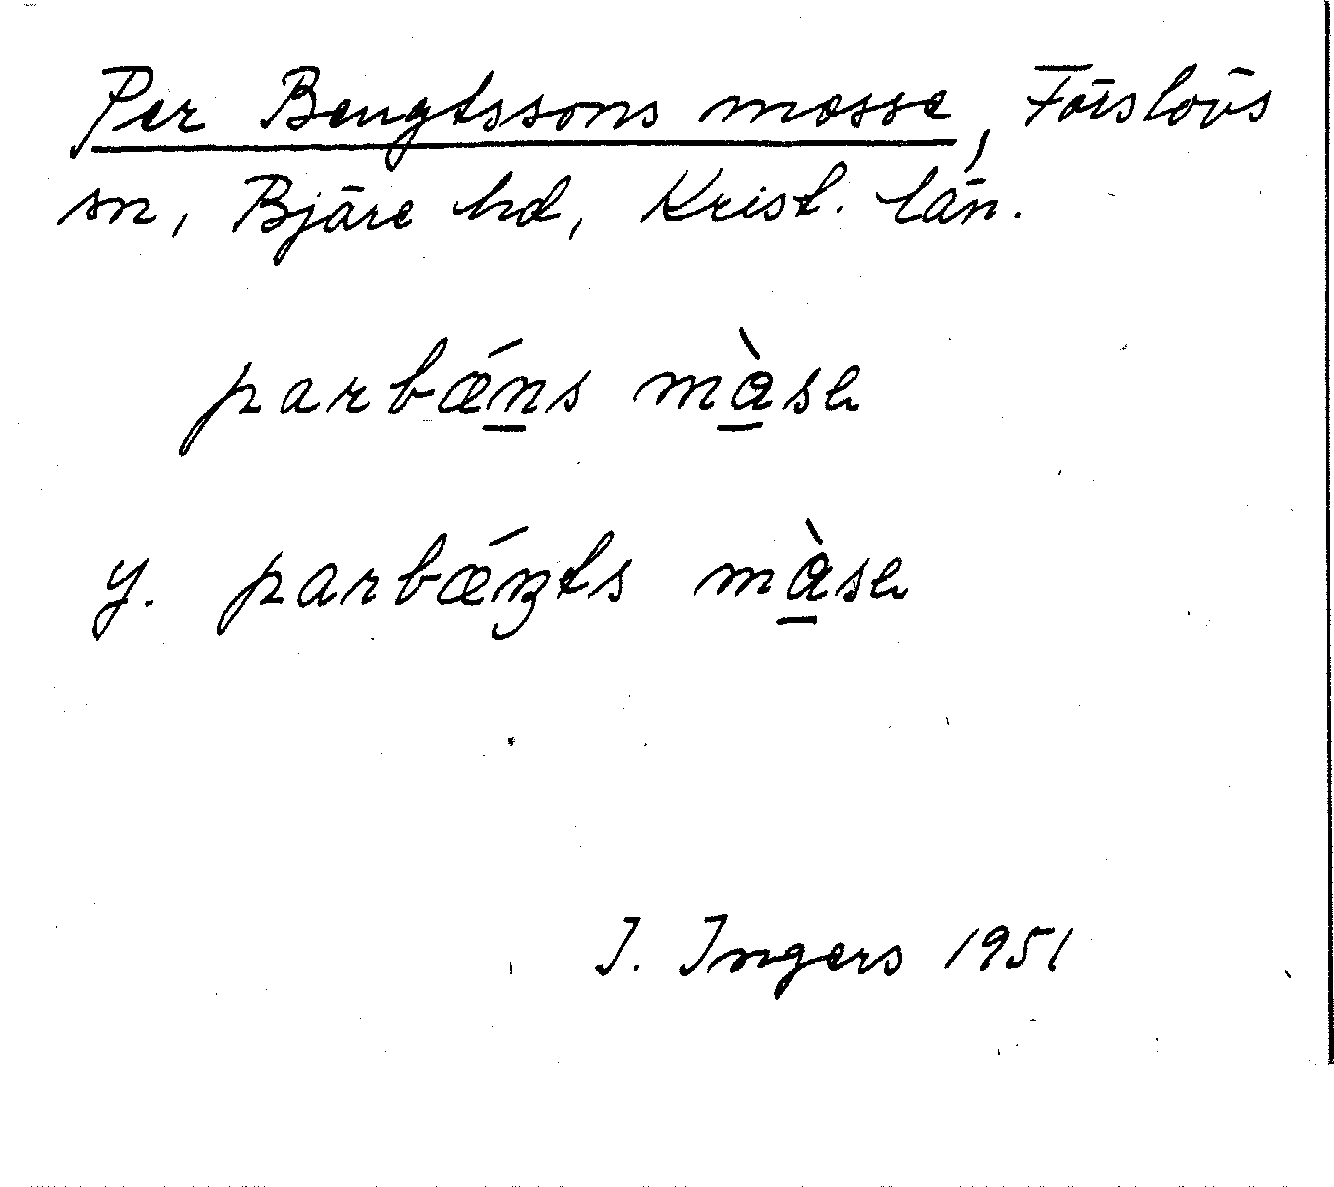 Per Bengtssons mosse, Förslövs
sn, Bjäre hd, Krist. län.
parbǽn̲s mà̲sə
y. parbǽŋts mà̲sə
I. Ingers 1951